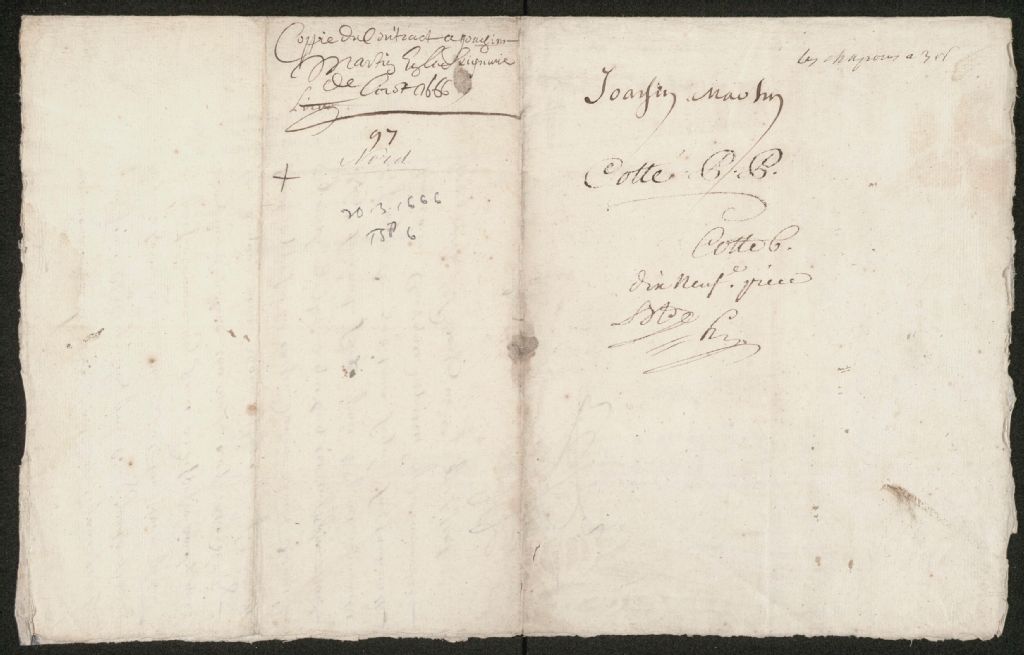 Coppie du Contract a Joachim
Martin En la Seigneurie
de Lirot 1666
97
Nord
+
20.3.1666
TSP 6
les chapons a 30s
Joachin Martin
Cotté B. B.
Cotte 6.
dix Neuf.e piece